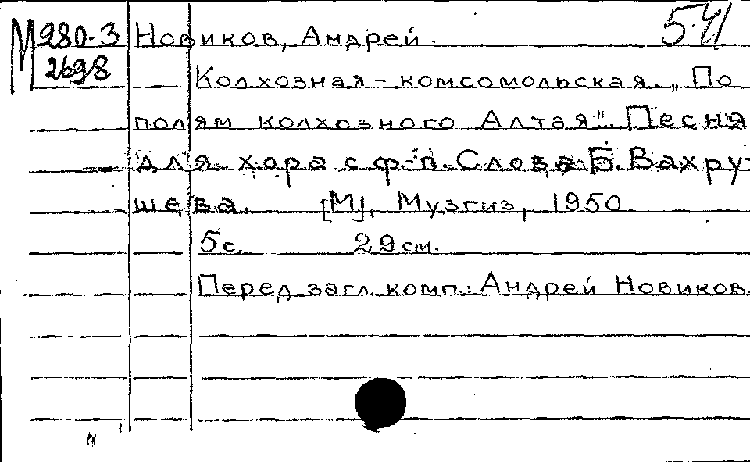 М 280-3 Новиков, Андрей. 54
2698 Колхозная-комсомольская. „По
полям колхозного Алтая". Песня
для хора с ф-п. Слова Б. Вахру
шева. [М], Музгиз, 1950
5с. 29 см.
Перед загл. комп.: Андрей Новиков.